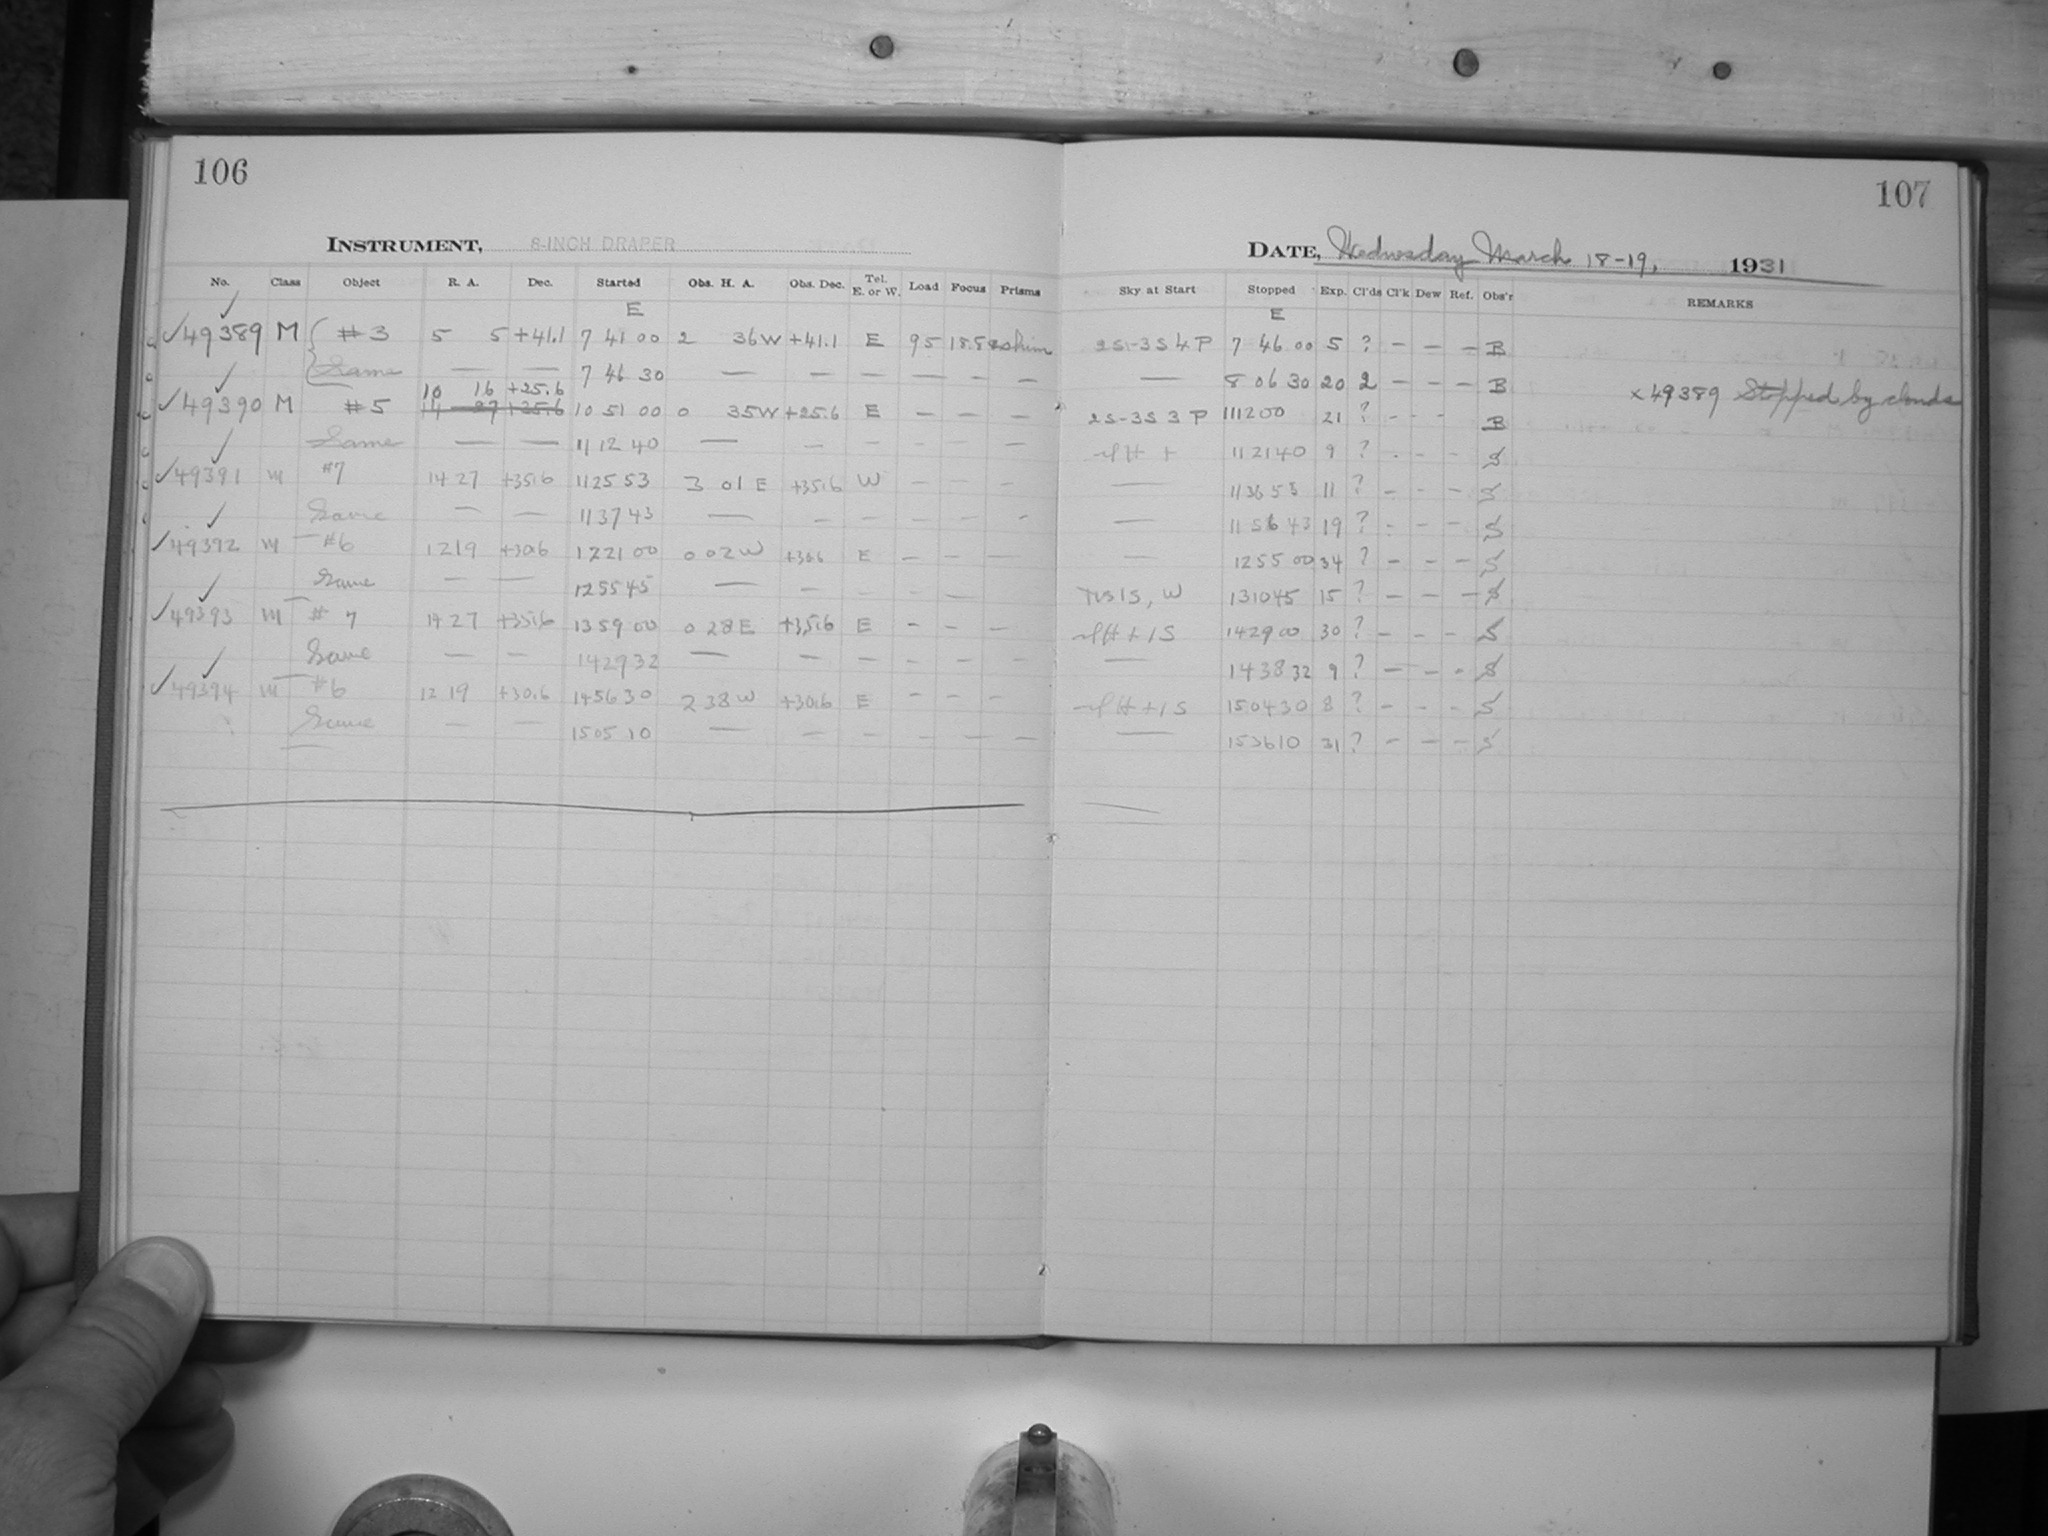 106
107
INSTRUMENT, 8-INCH DRAPER
DATE, Wednesday March 18-19, 1931
No. Class Object R. A. Dec. Started Obs. H. A. Obs. Dec. Tel. E. or W. Load Focus Prisms Sky at Start Stopped Exp. Cl'ds Cl'k Dew Ref. Obs'r REMARKS
E E
✓49389 M #3 5 5 +41.1 7 41 00 2 36W +41.1 E 95 2S-3S 4 P 7 46 00 5 ? – — – B
Same — — 7 46 30 — — — — – – — 8 06 30 20 2 – – – B
× 49389 Stopped by clouds
10 16 +25.6
✓49390 M #5 14 27 +35.6 10 51 00 0 35W +25.6 E – – – 2S-3S 3 P 11 12 00 21 ? – – – B
Same — — 11 12 40 — – – – – – 11 21 40 9 ? – – – S
✓49391 M #7 14 27 +35.6 11 25 53 3 01 E +35.6 W – – – — 11 36 53 11 ? – – – S
Same — — 11 37 43 — – – – – – — 11 56 43 19 ? – – – S
✓49392 M #6 12 19 +30.6 12 21 00 0 02 W +30.6 E – – – — 12 55 00 34 ? – – – S
Same — — 12 55 45 — – – – – 1S, W 13 10 45 15 ? – – – S
✓49393 M #7 14 27 +35.6 13 59 00 0 28 E +35.6 E – – – + 1S 14 29 00 30 ? – – – S
Same — — 14 29 32 — – – – – – — 14 38 32 9 ? – – – S
✓49394 M #6 12 19 +30.6 14 56 30 2 38 W +30.6 E – – – + 1S 15 04 30 8 ? – – – S
Same — — 15 05 10 — – – – – – — 15 36 10 31 ? – – – S